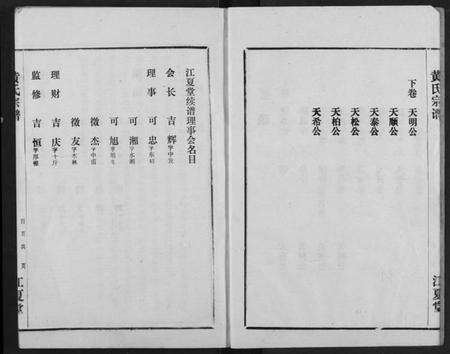 黄氏宗谱
下卷 天明公
天顺公
天泰公
天松公
天柏公
天希公
江夏堂
江夏堂续谱理事会名目
会长 吉辉
理事 可忠
可湘
可旭
徵杰
徵友 字木林
理财 吉庆 字十斤
监修 吉恒
黄氏宗谱
江夏堂